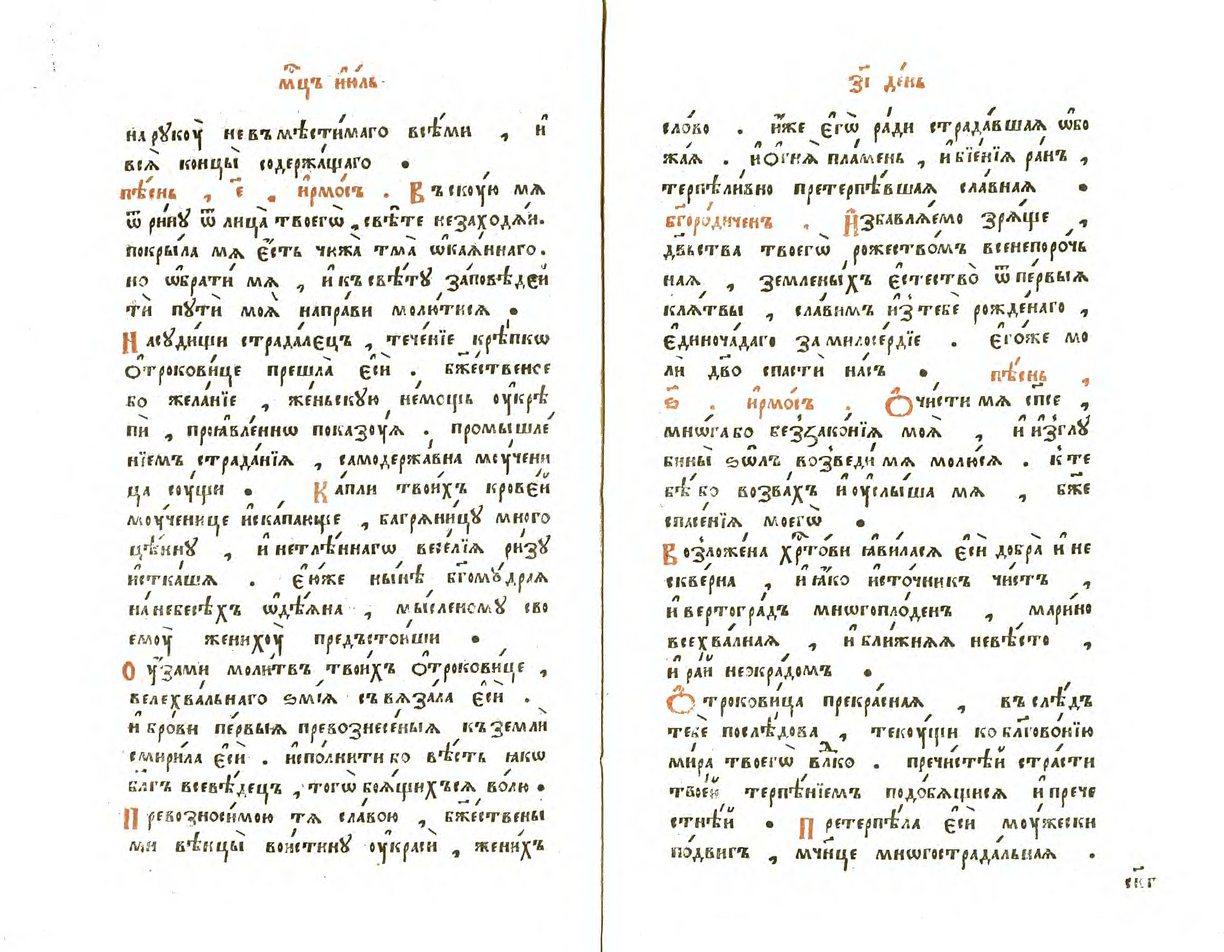 мц҃ъ і҆ю́ль
на рꙋкоу̀ невъмѣсти́маго всѣ́ми , и҆
всѧ̀ концы̀ содержа́щаго .
пѣ́снь , е҃ . і҆рмо́съ . Въскꙋ́ю мѧ
ѿри́нꙋ ѿ лица̀ твоегѡ̀ , свѣ́те незаходѧ́и .
покры́ла мѧ є҆́сть чюжа̀ тма̀ ѡ҆каѧ́ннаго .
но ѡ҆брати́ мѧ , и҆ къ свѣ́тꙋ за́повѣдей
тѝ пꙋтѝ моѧ̀ напра́ви молю́тисѧ .
На сꙋди́щи страда́лецъ , тече́нїе крѣ́пкѡ
ѻ҆трокови́це прешла̀ є҆сѝ . бж҃е́ственое
бо жела́нїе , же́ньскꙋю не́мощь оу҆крѣ
пѝ , проѧвле́ннѡ пока́зоуѧ . промышле́
нїемъ страда́нїѧ , самодержа́вна моучени
ца соу́щи . Ка́пли твои́хъ крове́й
моу́ченице и҆ска́пающе , багрѧни́цꙋ много
цѣ́ннꙋ , и҆ нетлѣ́ннагѡ весе́лїѧ ри́зꙋ
и҆стка́шѧ . є҆ю́же ны́нѣ бг҃омꙋ́драѧ
на небесѣ́хъ ѡ҆дѣ́ѧна , мы́сленомꙋ сво
емоу̀ женихоу̀ предъстои́ши .
Оу҆́зами моли́твъ твои́хъ ѻ҆трокови́це ,
велехва́льнаго ѕмі́ѧ съвѧза́ла є҆сѝ .
и҆ бро́ви пе́рвыѧ превознесе́ныѧ къ землѝ
смири́ла є҆сѝ . и҆спо́лнити бо вѣ́сть ꙗ҆́кѡ
бл҃гъ всевѣ́децъ , тогѡ̀ боѧ́щихъсѧ во́лю .
Превозноси́мою тѧ сла́вою , бж҃е́ствены
ми вѣнцы̀ вои́стинꙋ оу҆красѝ , жени́хъ
з҃і де́нь
сло́во . и҆́же є҆гѡ̀ ра́ди страда́вшаѧ ѡ҆бо
жа́ѧ . и҆ ѻ҆гнѧ̀ пла́мень , и҆ бїе́нїѧ ра́нъ ,
терпѣли́вно претерпѣ́вшаѧ сла́внаѧ .
бг҃оро́диченъ . И҆збавлѧ́емо зрѧ́ще ,
дв҃ьства твоегѡ̀ рожество́мъ всенепоро́чь
наѧ , земленых̀ъ є҆стество̀ ѿ пе́рвыѧ
клѧ́твы , сла́вимъ и҆з̾ тебѐ рожде́наго ,
є҆диноча́даго за милосе́рдїе . є҆го́же мо
лѝ дв҃о спастѝ на́съ . пѣ́снь ,
ѕ҃ . і҆рмо́съ . Ѻ҆чи́сти мѧ сп҃се ,
мнѡ́га бо беззако́нїѧ моѧ̀ , и҆ и҆зглꙋ
бины̀ ѕѡ́лъ возведи́ мѧ молю́сѧ . к̾ те
бѣ́ бо возва́хъ и҆ оу҆слы́ша мѧ , бж҃е
спасе́нїѧ моегѡ̀ .
Возложе́на хр҇то́ви ꙗ҆ви́ласѧ є҆сѝ добра̀ и҆ не
скве́рна , и҆ ꙗ҆́ко и҆сто́чникъ чи́стъ ,
и҆ вертогра́дъ мнѡгопло́денъ , мари́но
всехва́лнаѧ , и҆ бли́жнѧѧ невѣ́сто ,
и҆ ра́й неѡкра́домъ .
Ѻ҆трокови́ца прекра́снаѧ , въ слѣ́дъ
тебѐ послѣ́дова , текоу́щи ко бл҃гово́нїю
ми́ра твоегѡ̀ вл҃ко . пречи́стѣй стра́сти
твое́й терпѣ́нїемъ подо́бѧщисѧ и҆ прече
стнѣ́й . Претерпѣ́ла є҆сѝ моу́жески
по́двигъ , мч҃нце мнѡгострада́льнаѧ .
ск҃г